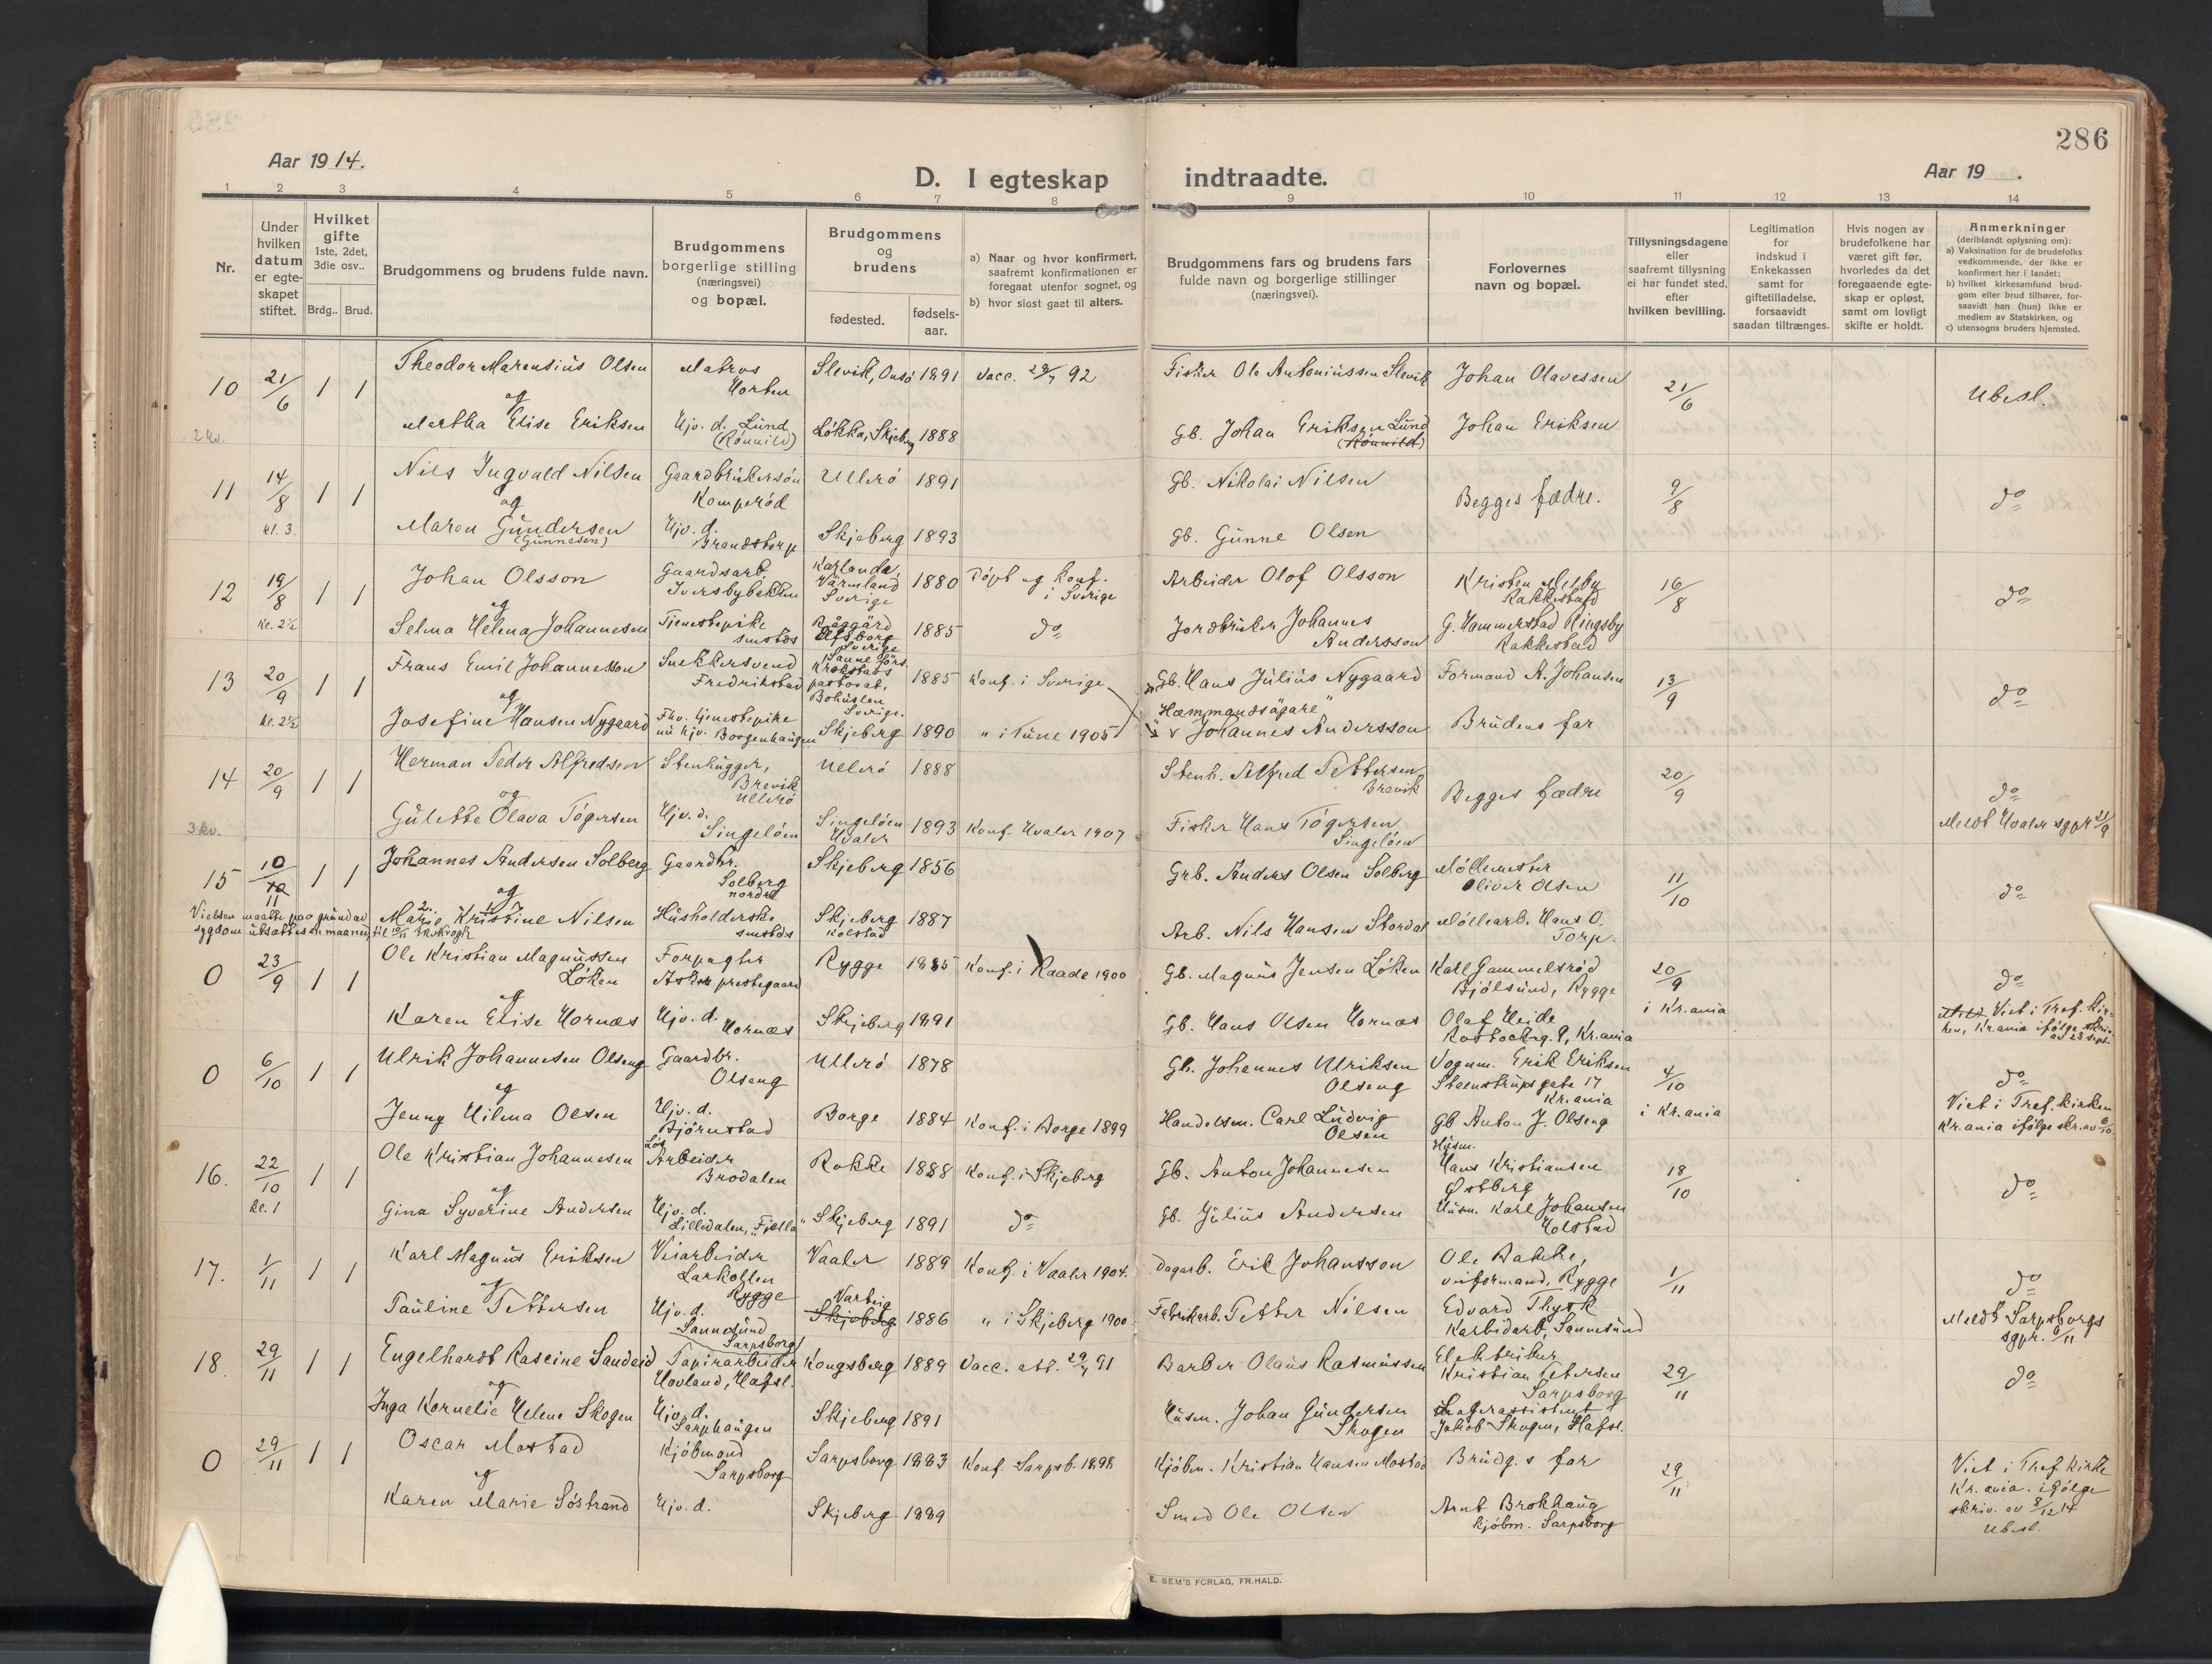 286
Aar 1914.
D. I egteskap indtraadte.
Aar 19 .
1 2 3 4 5 6 7 8 9 10 11 12 13 14
Nr.
Under hvilken datum er egte-skapet stiftet.
Hvilket gifte 1ste, 2det, 3die osv..
Brdg.. Brud.
Brudgommens og brudens fulde navn.
Brudgommens borgerlige stilling (næringsvei) og bopæl.
Brudgommens og brudens
fødested.
fødsels-aar.
a) Naar og hvor konfirmert, saafremt konfirmationen er foregaat utenfor sognet, og
b) hvor sidst gaat til alters.
Brudgommens fars og brudens fars fulde navn og borgerlige stillinger (næringsvei).
Forlovernes navn og bopæl.
Tillysningsdagene eller saafremt tillysning ei har fundet sted, efter hvilken bevilling.
Legitimation for indskud i Enkekassen samt for giftetilladelse, forsaavidt saadan tiltrænges.
Hvis nogen av brudefolkene har været gift før, hvorledes da det foregaaende egte-skap er opløst, samt om lovligt skifte er holdt.
Anmerkninger (deriblandt oplysning om):
a) Vaksination for de brudefolks vedkommende, der ikke er konfirmert her i landet;
b) hvilket kirkesamfund brud-gom eller brud tilhører, for-saavidt han (hun) ikke er medlem av Statskirken, og
c) utensogns bruders hjemsted.
10 21/6 1 1 Theodor Marensius Olsen Matros Horten Slevik, Onsø 1891 Vacc. 92 Fisker Ole Antoniussen Slevik Johan Olavessen 21/6 Ubesl.
og
2 kv. Martha Elise Eriksen Hjv. d. Lund (Rønnild) Løkka, Skjeberg 1888 Gb. Johan Eriksen Lund (Rønnild) Johan Eriksen
11 14/8 kl. 3. 1 1 Nils Ingvald Nilsen Gaardbrukersøn Komperød Ullerø 1891 Gb. Nikolai Nilsen Begges fædre. 9/8 do
og
Maren Gundersen (Gunnesen) Hjv. d. Brandstorp Skjeberg 1893 Gb. Gunne Olsen
12 19/8 kl. 2½ 1 1 Johan Olsson Gaardsarb. Iversbybakken Karlanda, Värmland Sverige 1880 Døpt og konf. i Sverige Arbeider Olof Olsson Kristen Melby Rakkestad 16/8 do
og
Selma Helena Johannesen Tjenestepike smstds Elfsborg Sverige 1885 do Jordbruker Johannes Andersson G. Hammerstad Ringsby Rakkestad
13 20/9 kl. 2½ 1 1 Frans Emil Johannesson Snekkersvend Fredrikstad Sanne förs. Krokstads pastorat, Bohuslen Sverige. 1885 Konf. i Sverige Gb. Hans Julius Nygaard Formand A. Johansen 13/9 do
og
Josefine Hansen Nygaard Fhv. tjenestepike nu hjv. Borgenhaugen Skjeberg 1890 " i Tune 1905 "Hemmandsägare" Johannes Andersson Brudens far
14 20/9 1 1 Herman Peder Alfredsen Stenhugger, Brevik Ullerø Ullerø 1888 Stenh. Alfred Pettersen Brevik Begges fædre 20/9 do
og
3 kv. Gulette Olava Tøgersen Hjv. d. Singeløen Singeløen Hvaler 1893 Konf. Hvaler 1907 Fisker Hans Tøgersen Singeløen Meldt Hvaler sgpr 21/9
15 10/11 1 1 Johannes Andersen Solberg Gaardbr. Solberg nordre Skjeberg 1856 Grb. Anders Olsen Solberg Møllemester Oliver Olsen 11/10 do
og
Vielsen maatte paa grund av sygdom utsættes en maaned, til 10/11
Marie Kristine Nilsen Husholderske smstds Skjeberg Kolstad 1887 Arb. Nils Hansen Stordal Møllearb. Hans O. Torp.
0 23/9 1 1 Ole Kristian Magnussen Løken Forpagter Askim prestegaard Rygge 1885 Konf. i Raade 1900 Gb. Magnus Jensen Løken Karl Gammelsrød Bjølsund, Rygge 20/9 i Kr.ania do
og
Karen Elise Hornæs Hjv. d. Hornæs Skjeberg 1891 Gb. Hans Olsen Hornæs Olaf Heide Rostockg. 9, Kr.ania Viet i Tref. kir-ken, Kr.ania ifølge skriv. av 23 sept.
0 6/10 1 1 Ulrik Johannesen Olseng Gaardbr. Olseng Ullerø 1878 Gb. Johannes Ulriksen Olseng Vognm. Erik Eriksen Steenstrups gate 17 Kr.ania 4/10 i Kr.ania do
og
Jenny Hilma Olsen Hjv. d. Bjørnstad Borge 1884 Konf. i Borge 1899 Handelsm. Carl Ludvig Olsen Gb Anton J. Olseng Viet i Tref. kirken Kr.ania ifølge skr. av 6/10.
16. 22/10 kl. 1 1 1 Ole Kristian Johannesen Løs Arbeider Brodalen Rokke 1888 Konf. i Skjeberg Gb. Anton Johannesen Husm. Hans Kristiansen Østberg 18/10 do
og
Gina Syverine Andersen Hjv. d. Lilledalen, "Fjella" Skjeberg 1891 do Gb. Julius Andersen Husm. Karl Johansen Holstad
17. 1/11 1 1 Karl Magnus Eriksen Veiarbeider Larkollen Rygge Vaaler 1889 Konf. i Vaaler 1904. Dagarb. Erik Johansson Ole Bakke, veiformand, Rygge 1/11 do
og
Pauline Pettersen Hjv. d. Sannesund Sarpsborg Varteig Skjeberg 1886 " i Skjeberg 1900 Fabrikarb. Petter Nilsen Edvard Thysk Karbidarb, Sannesund Meldt Sarpsborgs sgpr. 6/11
18. 29/11 1 1 Engelhardt Rascine Sandeid Papirarbeider Hovland, Hafsl. Kongsberg 1889 Vacc. att. 91 Barber Olaus Rasmussen Elektriker Kristian Petersen Sarpsborg 29/11 do
og
Inga Kornelie Helene Skogen Hjv. d. Sarphaugen Skjeberg 1891 Husm. Johan Gundersen Skogen Lagerassistent Jakob Skogen, Hafsl.
0 29/11 1 1 Oscar Mostad Kjøbmand Sarpsborg Sarpsborg 1883 Konf. Sarpsb. 1898 Kjøbm. Kristian Hansen Mostad Brudg.s far 29/11 Viet i Tref. kirke Kr.ania. ifølge skriv. av 8/12 14 Ubesl.
og
Karen Marie Søstrand Hjv. d. Skjeberg 1889 Smed Ole Olsen Arnt Brokhaug kjøbm. Sarpsborg
E. SEM'S FORLAG, FR.HALD.